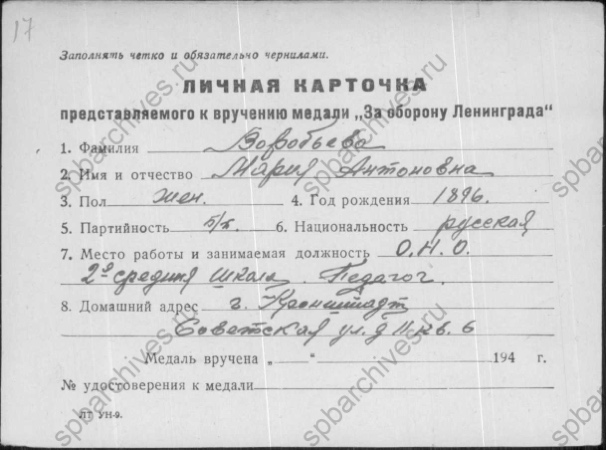 17
Заполнять четко и обязательно чернилами.
ЛИЧНАЯ КАРТОЧКА
представляемого к вручению медали „За оборону Ленинграда“
1. Фамилия Воробьева
2. Имя и отчество Мария Антоновна
3. Пол жен. 4. Год рождения 1896.
5. Партийность б/п. 6. Национальность русская
7. Место работы и занимаемая должность О.Н.О.
2ая средняя школа. Педагог.
8. Домашний адрес г. Кронштадт
Советская ул. д 11 кв. 6
Медаль вручена „ “ 194 г.
№ удостоверения к медали
ЛГ УН-9.
spbarchives.ru
spbarchives.ru
spbarchives.ru
spbarchives.ru
spbarchives.ru
spbarchives.ru